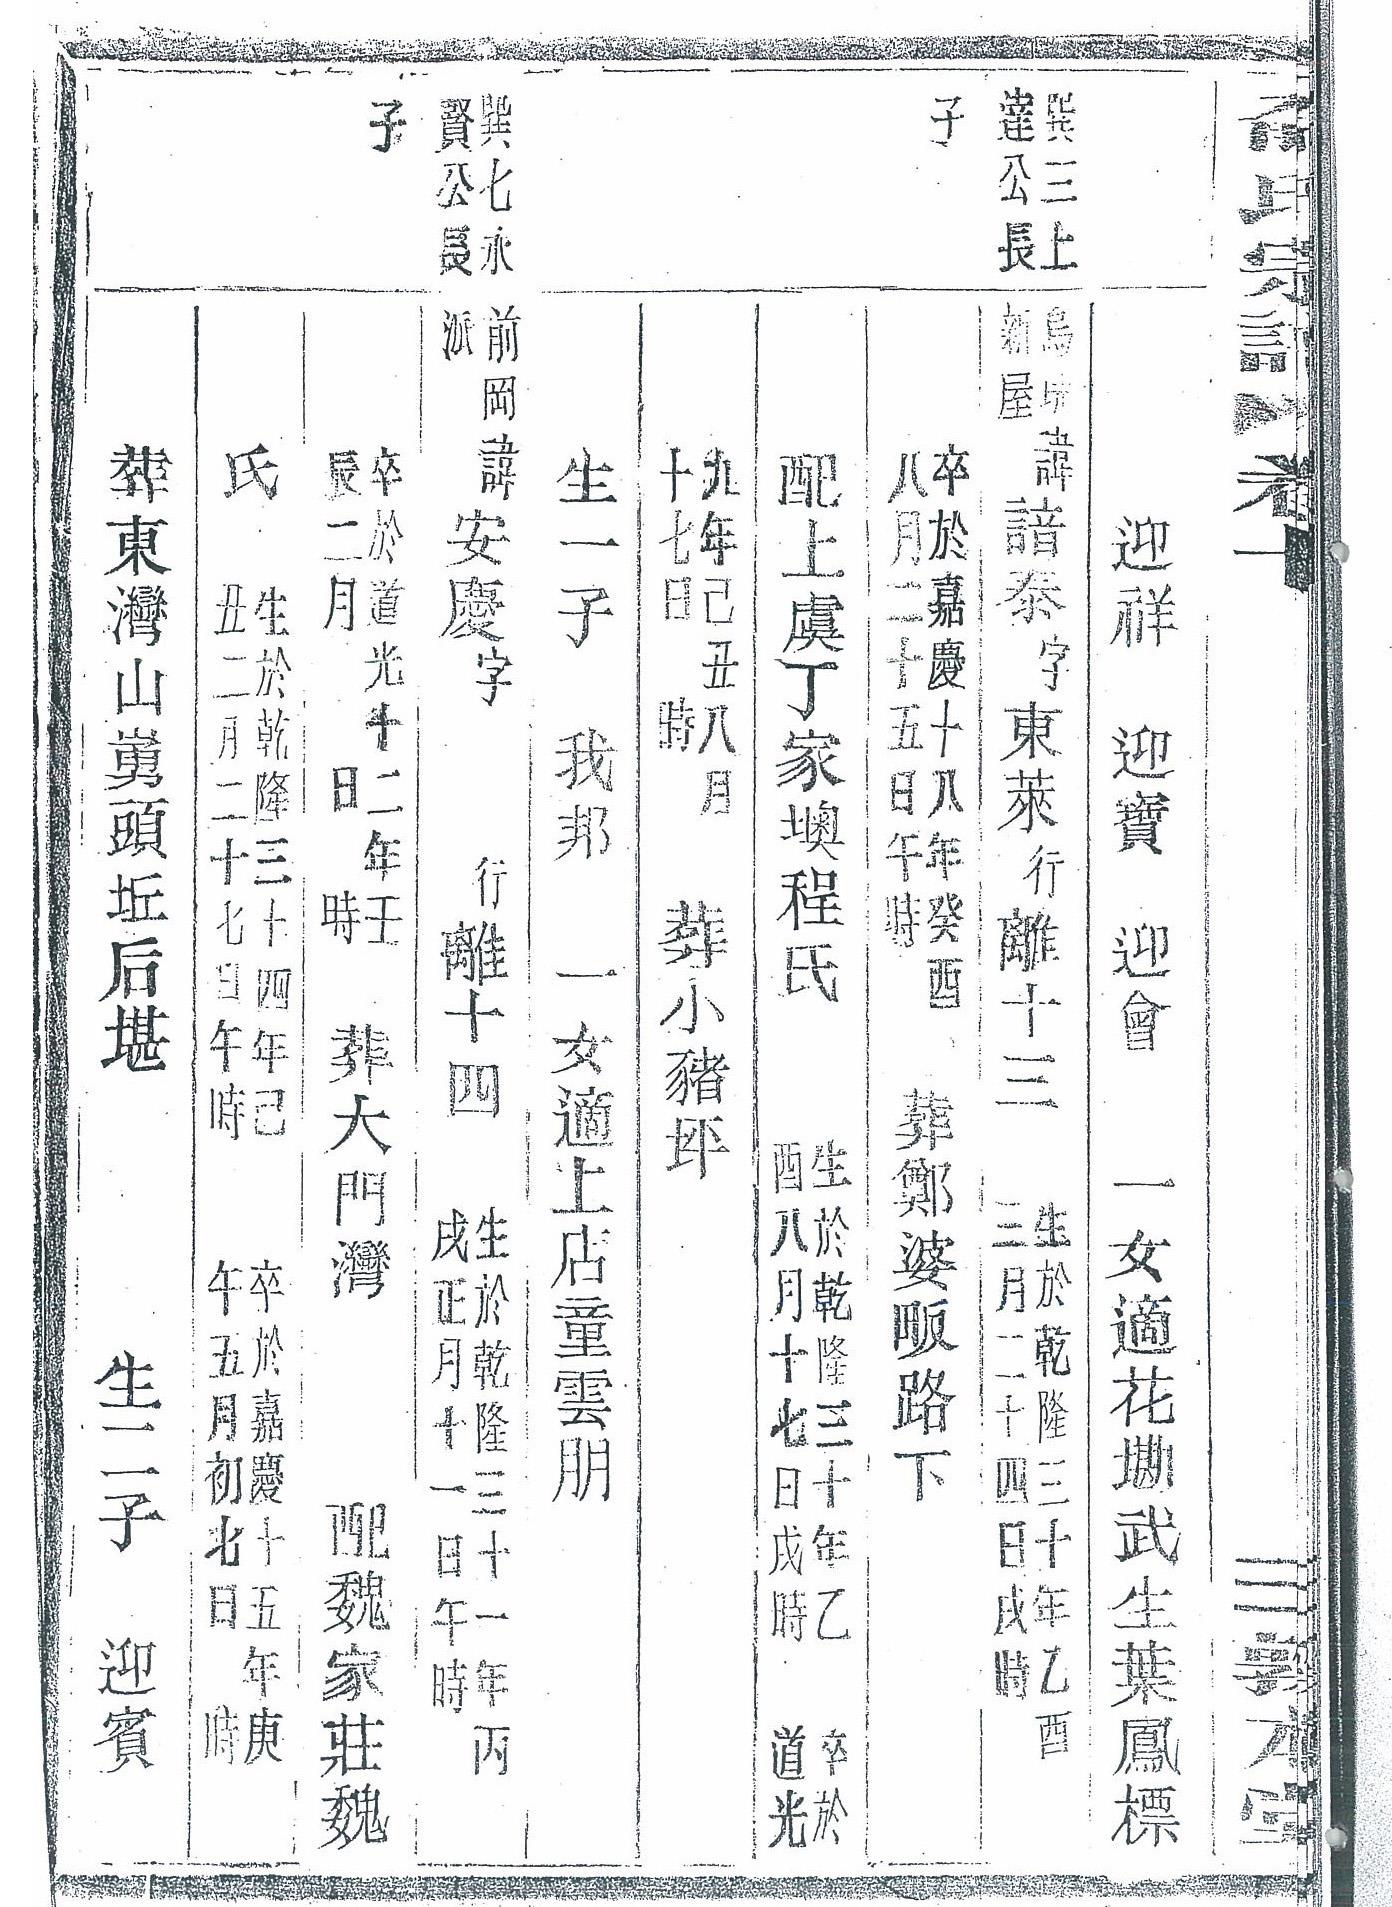 氏宗譜 卷一 三 敦本堂
迎祥 迎寶 迎會 一女適花墈武生葉鳳標
巽三上
達公長
子
新屋
諱諳泰字東萊行離十三
生於乾隆三十年乙酉
三月二十四日戌時
卒於嘉慶十八年癸酉
八月二十五日午時
葬鄭婆畈路下
配上虞丁家墺程氏
生於乾隆三十年乙
酉八月十七日戌時
卒於
道光
九年己丑八月
十七日 時
葬小豬坪
生一子 我邦 一女適上店童雲朋
巽七永
賢公長
子
前岡
派
諱安慶字 行離十四
生於乾隆三十一年丙
戌正月十一日午時
卒於道光十二年壬
辰二月 日 時
葬大門灣 配魏家莊魏
氏
生於乾隆三十四年己
丑二月二十七日午時
卒於嘉慶十五年庚
午五月初七日 時
葬東灣山嵏頭坵后堪 生二子 迎賓